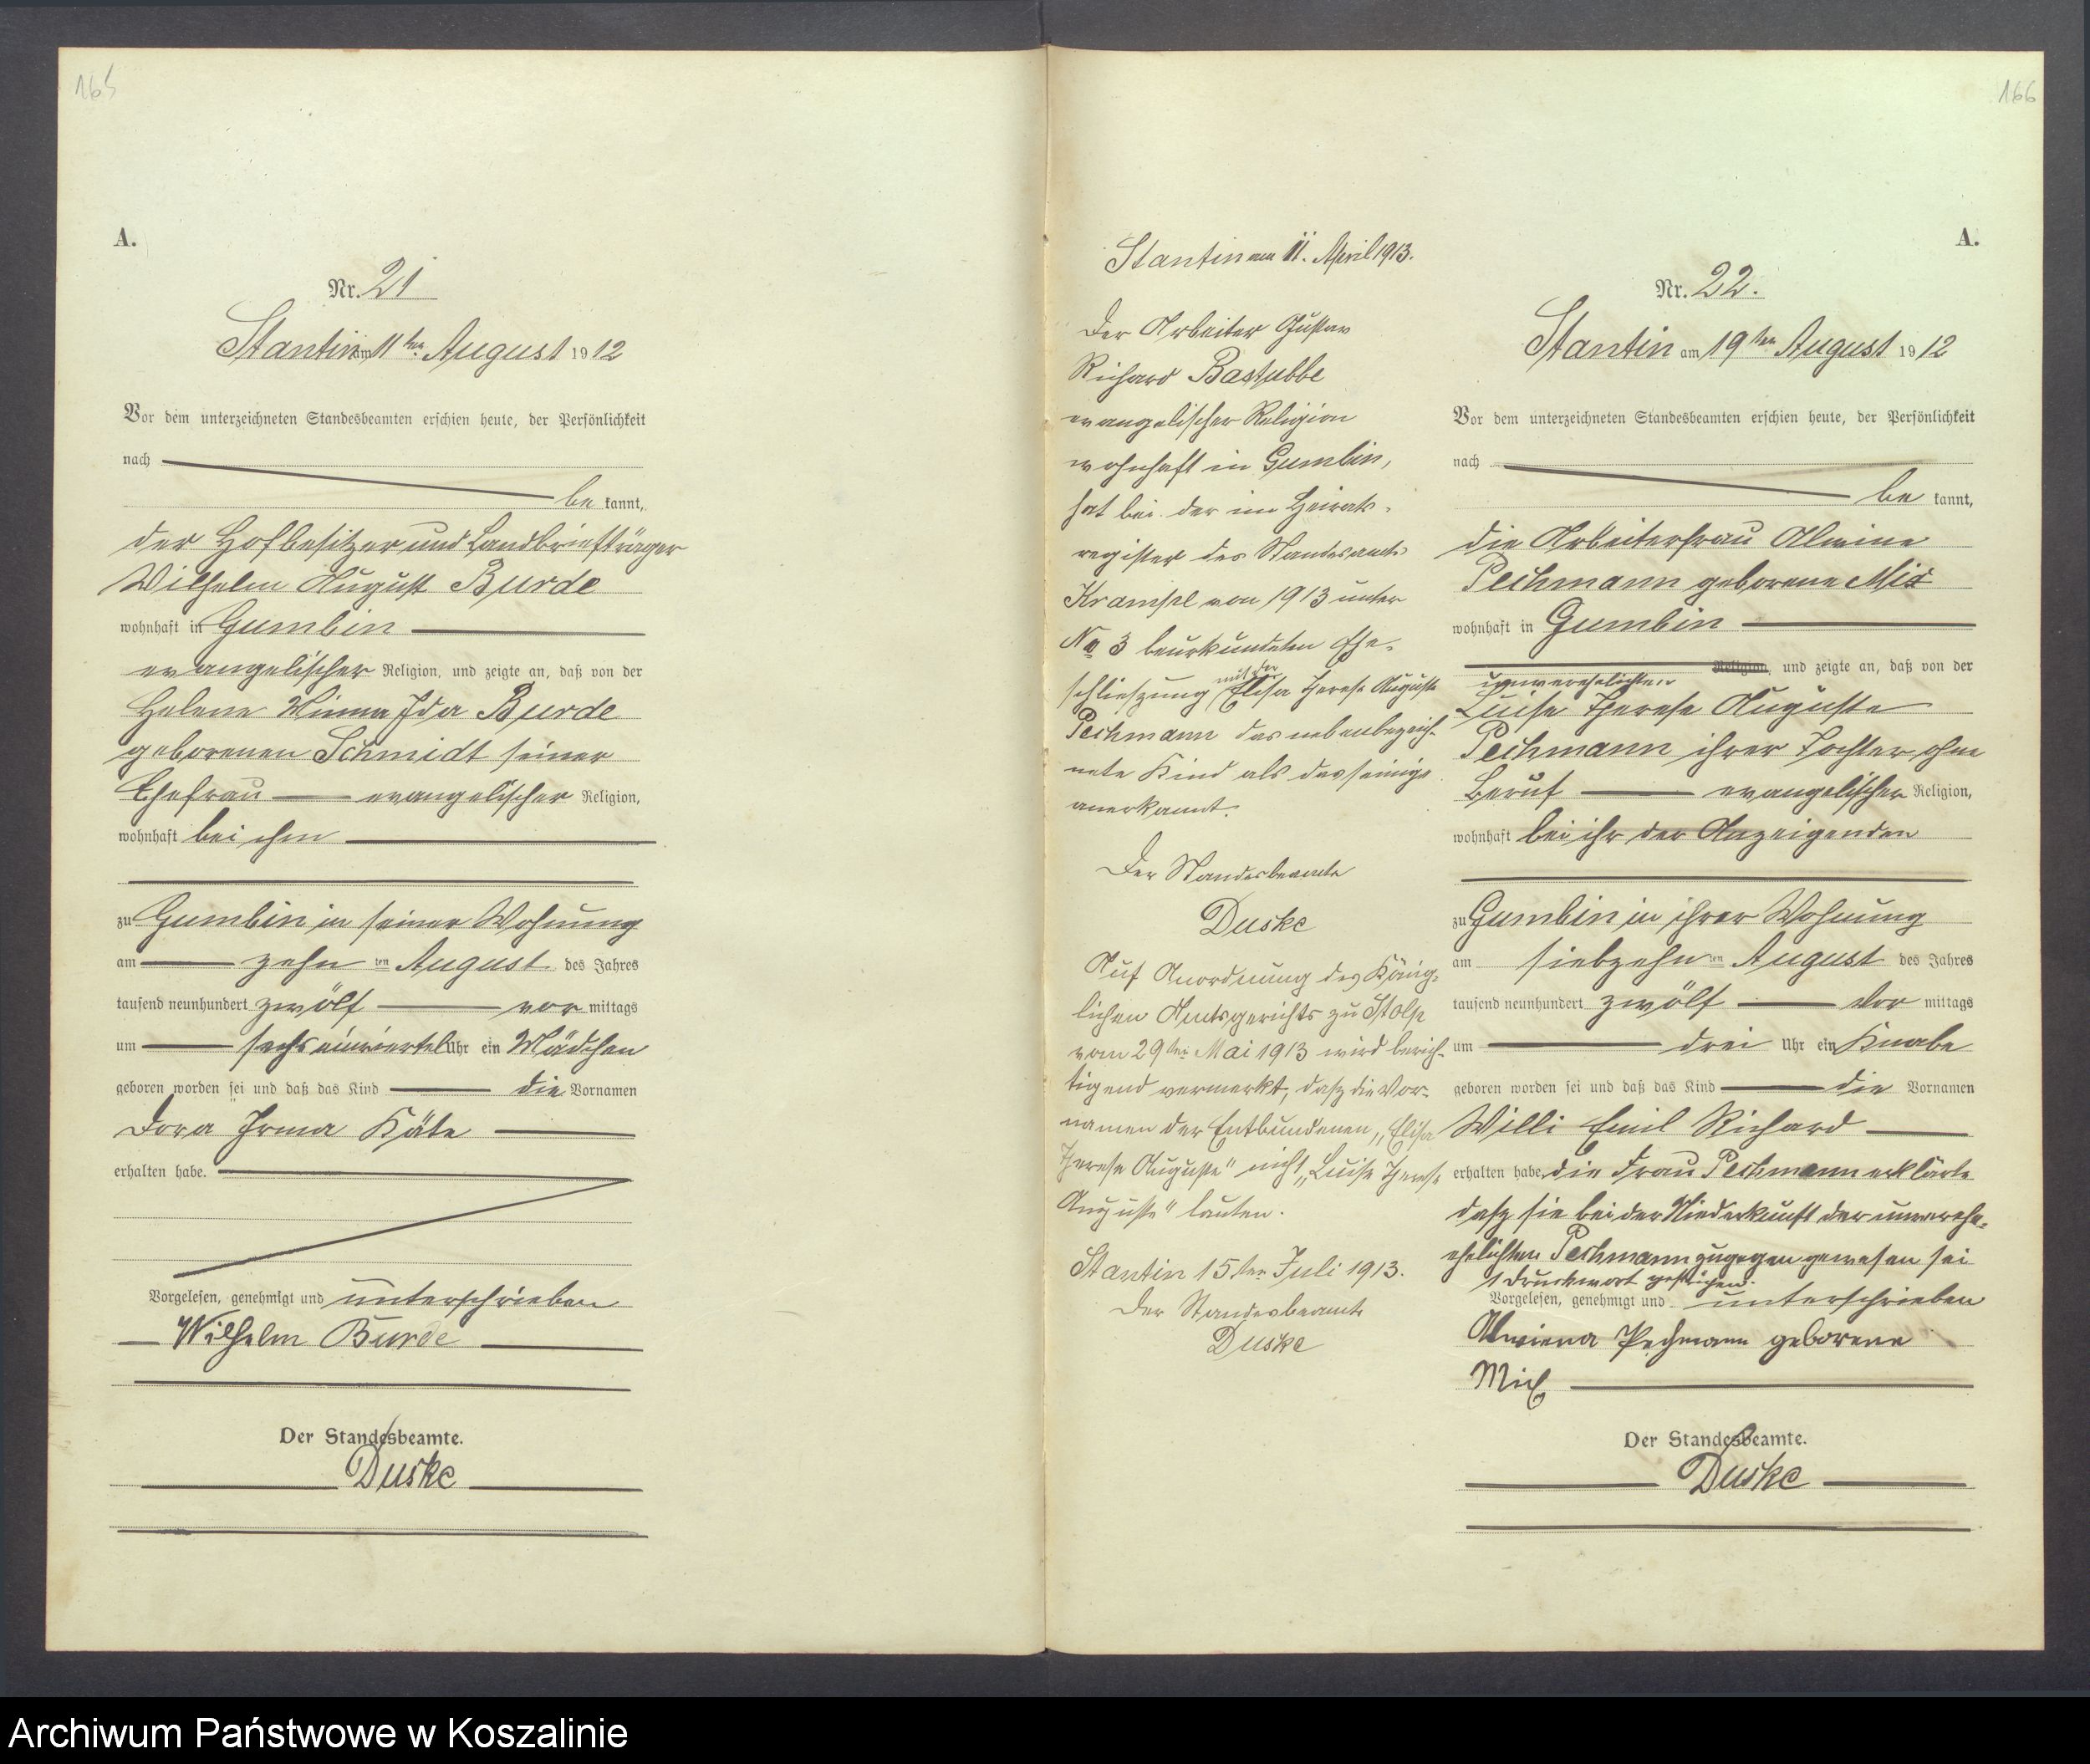 165
A.
Nr. 21
Stantin am 11ten August 1912
Vor dem unterzeichneten Standesbeamten erschien heute, der Persönlichkeit
nach
be kannt,
der Hofbesitzer und Landbriefträger
Wilhelm August Burde
wohnhaft in Gumbin
evangelischer Religion, und zeigte an, daß von der
Helene Minna Ida Burde
geborenen Schmidt seiner
Ehefrau evangelischer Religion,
wohnhaft bei ihm
zu Gumbin in seiner Wohnung
am zehn ten August des Jahres
tausend neunhundert zwölf vor mittags
um sechs einviertel Uhr ein Mädchen
geboren worden sei und daß das Kind die Vornamen
Dora Irma Käte
erhalten habe.
Vorgelesen, genehmigt und unterschrieben
Wilhelm Burde
Der Standesbeamte.
Duske
166
A.
Stantin am 11. April 1913.
Der Arbeiter Gustav
Richard Bastubbe
evangelischer Religion
wohnhaft in Gumbin,
hat bei der im Heirats-
register des Standesamts
Krampe von 1913 unter
No 3 beurkundeten Ehe-
schließung mit der Elisa Therese Auguste
Pechmann das nebenbezeich-
nete Kind als das seinige
anerkannt.
Der Standesbeamte
Duske
Auf Anordnung des König-
lichen Amtsgerichts zu Stolp
vom 29ten Mai 1913 wird berich-
tigend vermerkt, daß die Vor-
namen der Entbundenen „Elisa
Therese Auguste" nicht „Luise Therese
Auguste" lauten.
Stantin 15ten Juli 1913.
Der Standesbeamte
Duske
Nr. 22.
Stantin am 19ten August 1912
Vor dem unterzeichneten Standesbeamten erschien heute, der Persönlichkeit
nach
be kannt,
die Arbeiterfrau Alwine
Pechmann geborene Mix
wohnhaft in Gumbin
Religion, und zeigte an, daß von der
unverehelichten
Luise Therese Auguste
Pechmann ihrer Tochter ohne
Beruf evangelischer Religion,
wohnhaft bei ihr der Anzeigenden
zu Gumbin in ihrer Wohnung
am siebzehn ten August des Jahres
tausend neunhundert zwölf vor mittags
um drei Uhr ein Knabe
geboren worden sei und daß das Kind die Vornamen
Willi Emil Richard
erhalten habe. die Frau Pechmann erklärte
daß sie bei der Niederkunft der unverehe-
ehelichten Pechmann zugegen gewesen sei
1 Druckwort gestrichen.
Vorgelesen, genehmigt und unterschrieben
Alwiena Pechmann geborene
Mix
Der Standesbeamte.
Duske
Archiwum Państwowe w Koszalinie